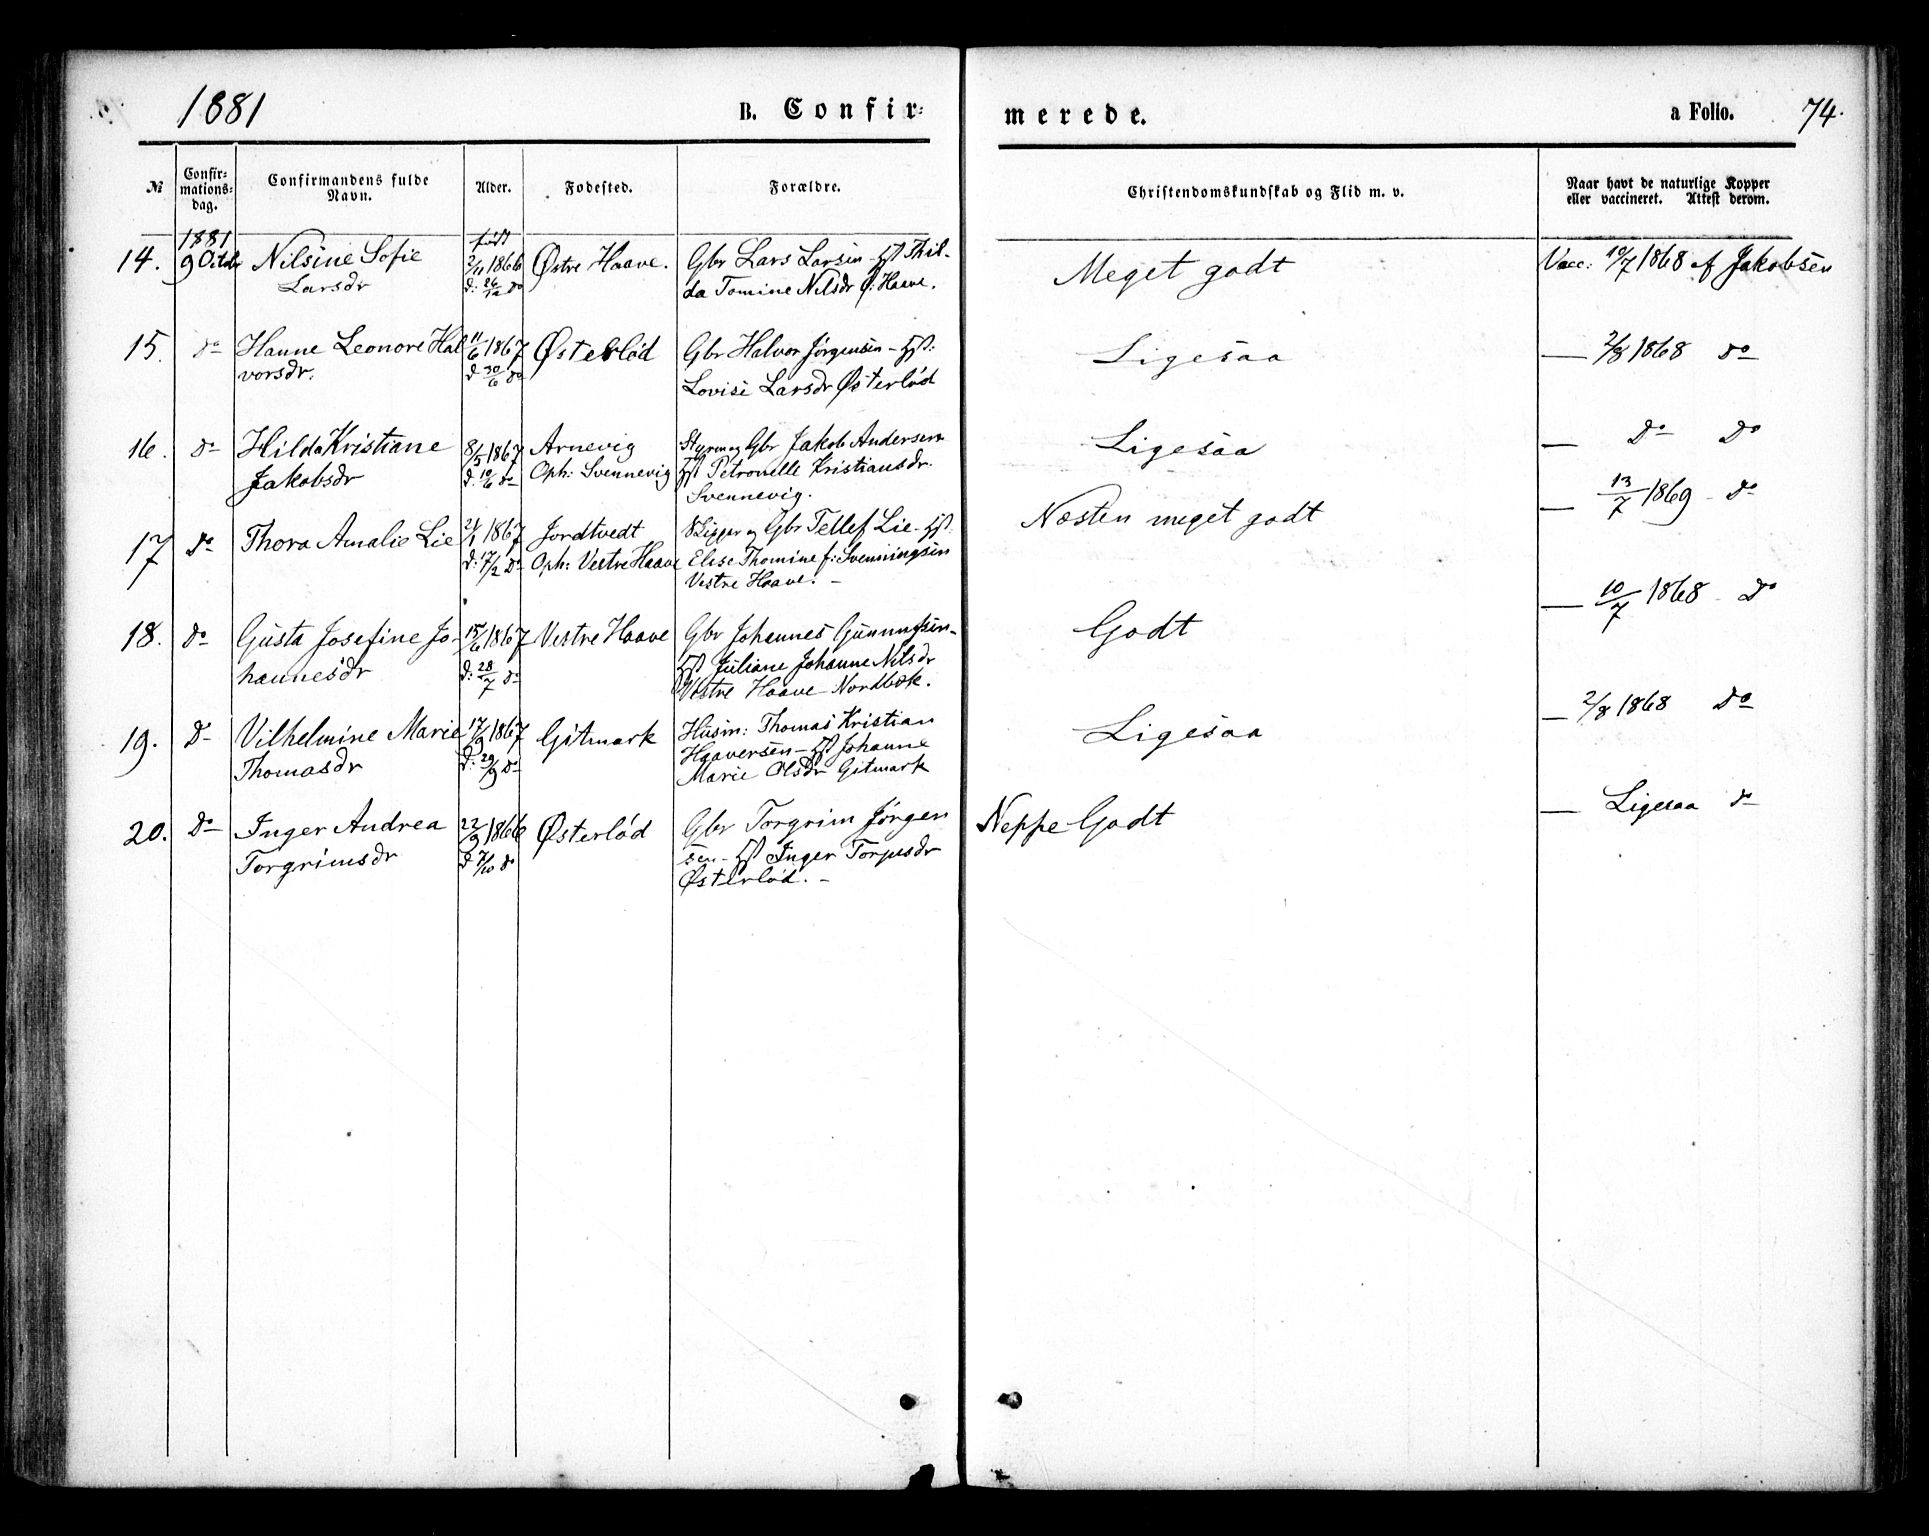 1881 B. Confirmerede. a Folio. 74.
№ Confirmationsdag. Confirmandens fulde Navn. Alder. Fødested. Forældre. Christendomskundskab og Flid m. v. Naar havt de naturlige Kopper eller vaccineret. Attest derom.
1881 født
14. 9 Octbr Nilsine Sofie 2/11 1866 Østre Haave. Gbr Lars Larsen - Hst Thil- Meget godt Vacc: 10/7 1868 af Jakobsen
Larsdr d: 26/12 do da Tomine Nilsdr Ø: Haave.
15. do Hanne Leonore Hal 11/6 1867 Østerlød Gbr Halvor Jørgensen - Hst: Ligesaa — 2/8 1868 do
vorsdr. d 30/6 do Lovise Larsdr Østerlød
16. do Hilda Kristiane 8/5 1867 Arnevig Styrm og Gbr Jakob Andersen Ligesaa — Do Do
Jakobsdr d. 10/6 do Oph: Svennevig Hst Petronelle Kristiansdr.
Svennevig.
17 Do Thora Amalie Lie 21/1 1867 Jordtvedt Skipper og Gbr Tellef Lie - Hst. Næsten meget godt — 13/7 1869 - do
d: 17/2 Do Oph: Vestre Haave Elise Thomine f: Svenningsen
Vestre Haave. -
18. do Gusta Josefine Jo- 15/6 1867 Vestre Haave Gbr Johannes Gunnufsen - Godt — 10/7 1868 - Do
hannesdr d: 28/7 do Hst Juliane Johanne Nilsdr
Vestre Haave - Nordbøk.
19. Do Vilhelmine Marie 17/9 1867 Gitmark Husm: Thomas Kristian Ligesaa — 2/8 1868 Do
Thomasdr d: 29/9 do Haaversen - Hst Johanne
Marie Olsdr Gitmark
20. Do Inger Andrea 22/9 1866 Østerlød Gbr Torgrim Jørgen Neppe Godt — Ligesaa do
Torgrimsdr d 7/10 do sen - Hst Inger Torjusdr
Østerlød. -